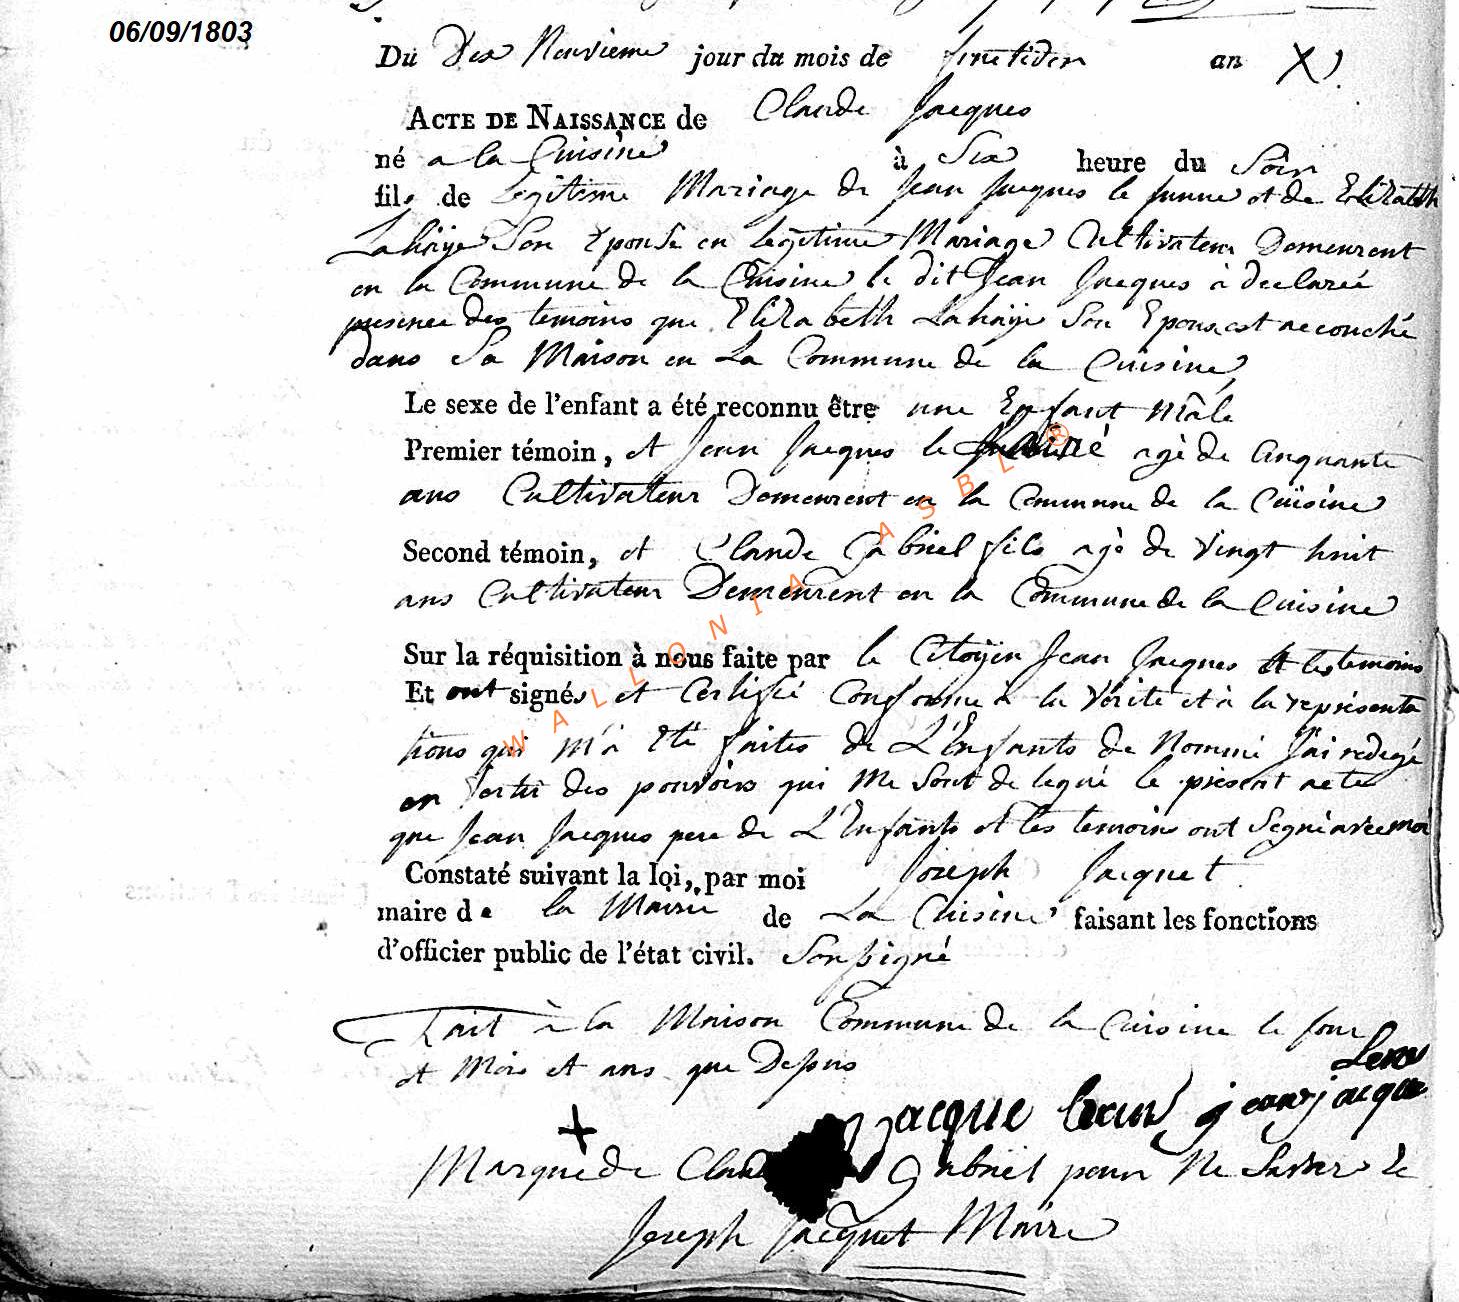 06/09/1803
Du Dix Neuvieme jour du mois de fructidor an XI
ACTE DE NAISSANCE de Claude Jacques
né a la Cuisine à Six heure du Soir
fils de Legitime Mariage de Jean Jacques le Junne et de Elizabeth
Lahaÿe Son Epouse en legitime Mariage Cultivateur Demeurent
en la Commune de la Cuisine le dit Jean Jacques à declareé
presence des temoins que Elizabeth Lahaÿe Son Epouse est accouché
dans Sa Maison en La Commune de la Cuisine
Le sexe de l'enfant a été reconnu être une Enfant Mâle
Premier témoin, et Jean Jacques le agè de Cinquante
ans Cultivateur Demeurent en la Commune de la Cuisine
Second témoin, et Claude Gabriel fils agè de vingt huit
ans Cultivateur Demeurent en la Commune de la Cuisine
Sur la réquisition à nous faite par le Citoÿen Jean Jacques Et les temoins
Et ont signés et Certifié Conforme à la Vérité et à la representa
tions qui M'a Eté faites de L'Enfants de Nommé J'ai redegé
en Vertu des pouvoirs qui Me Sont de legué le présent acte
que Jean Jacques pere de L'Enfants et les temoins ont Segné avec moi
Constaté suivant la loi, par moi Joseph Jacquet
maire de la Mairie de La Cuisine faisant les fonctions
d'officier public de l'état civil. Sousigné
Fait à la Maison Commune de la Cuisine le Jour
et Mois et ans que Desus
jacque jean jacque
Marque de Claude Gabriel pour Ne Savoir
Joseph Jacquet Maire
WALLONIA ASBL ®